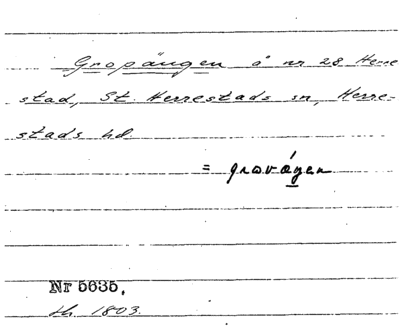 Gropängen å nr 28 Herre
stad, St. Herrestads sn, Herre-
stads hd.
= gravángen
Nr 5635,
1803.